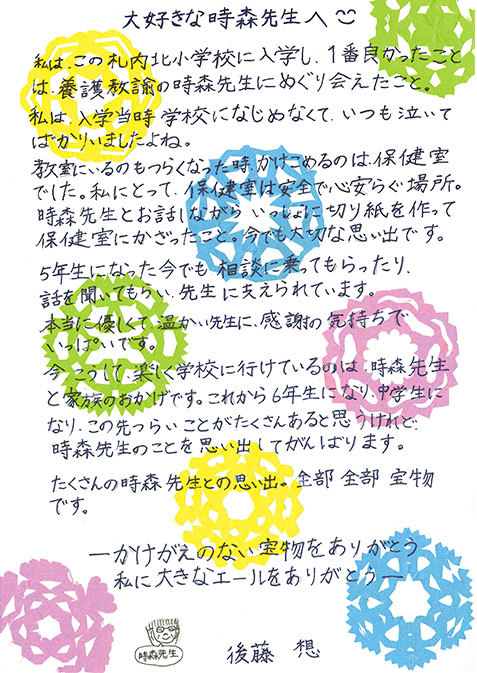 大好きな時森先生へ
私は、この札内北小学校に入学し、1番良かったこと
は、養護教諭の時森先生にめぐり会えたこと。
私は、入学当時学校になじめなくて、いつも泣いて
ばかりいましたよね。
教室にいるのもつらくなった時、かけこめるのは、保健室
でした。私にとって、保健室は安全で心安らぐ場所。
時森先生とお話しながら いっしょに切り紙を作って
保健室にかざったこと。今でも大切な思い出です。
5年生になった今でも 相談に乗ってもらったり、
話を聞いてもらい、先生に支えられています。
本当に優しくて、温かい先生に、感謝の気持ちで
いっぱいです。
今 こうして、楽しく学校に行けているのは、時森先生
と家族のおかげです。これから6年生になり、中学生に
なり、この先つらいことがたくさんあると思うけれど、
時森先生のことを思い出してがんばります。
たくさんの時森先生との思い出。全部 全部 宝物
です。
―かけがえのない宝物をありがとう
私に大きなエールをありがとう―
時森先生
後藤 想